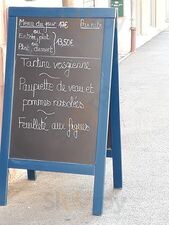 Menu du jour 17€
ou
Entrée, plat } 13,50€
ou
Plat, dessert
Tartine vosgienne
Paupiette de veau et
pommes rissolées
Feuilleté aux figues